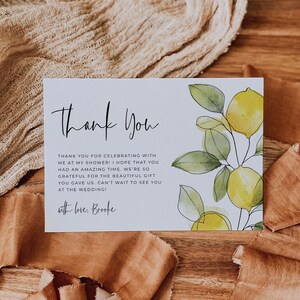 Thank You
THANK YOU FOR CELEBRATING WITH
ME AT MY SHOWER! I HOPE THAT YOU
HAD AN AMAZING TIME. WE'RE SO
GRATEFUL FOR THE BEAUTIFUL GIFT
YOU GAVE US. CAN'T WAIT TO SEE YOU
AT THE WEDDING!
with love, Brooke